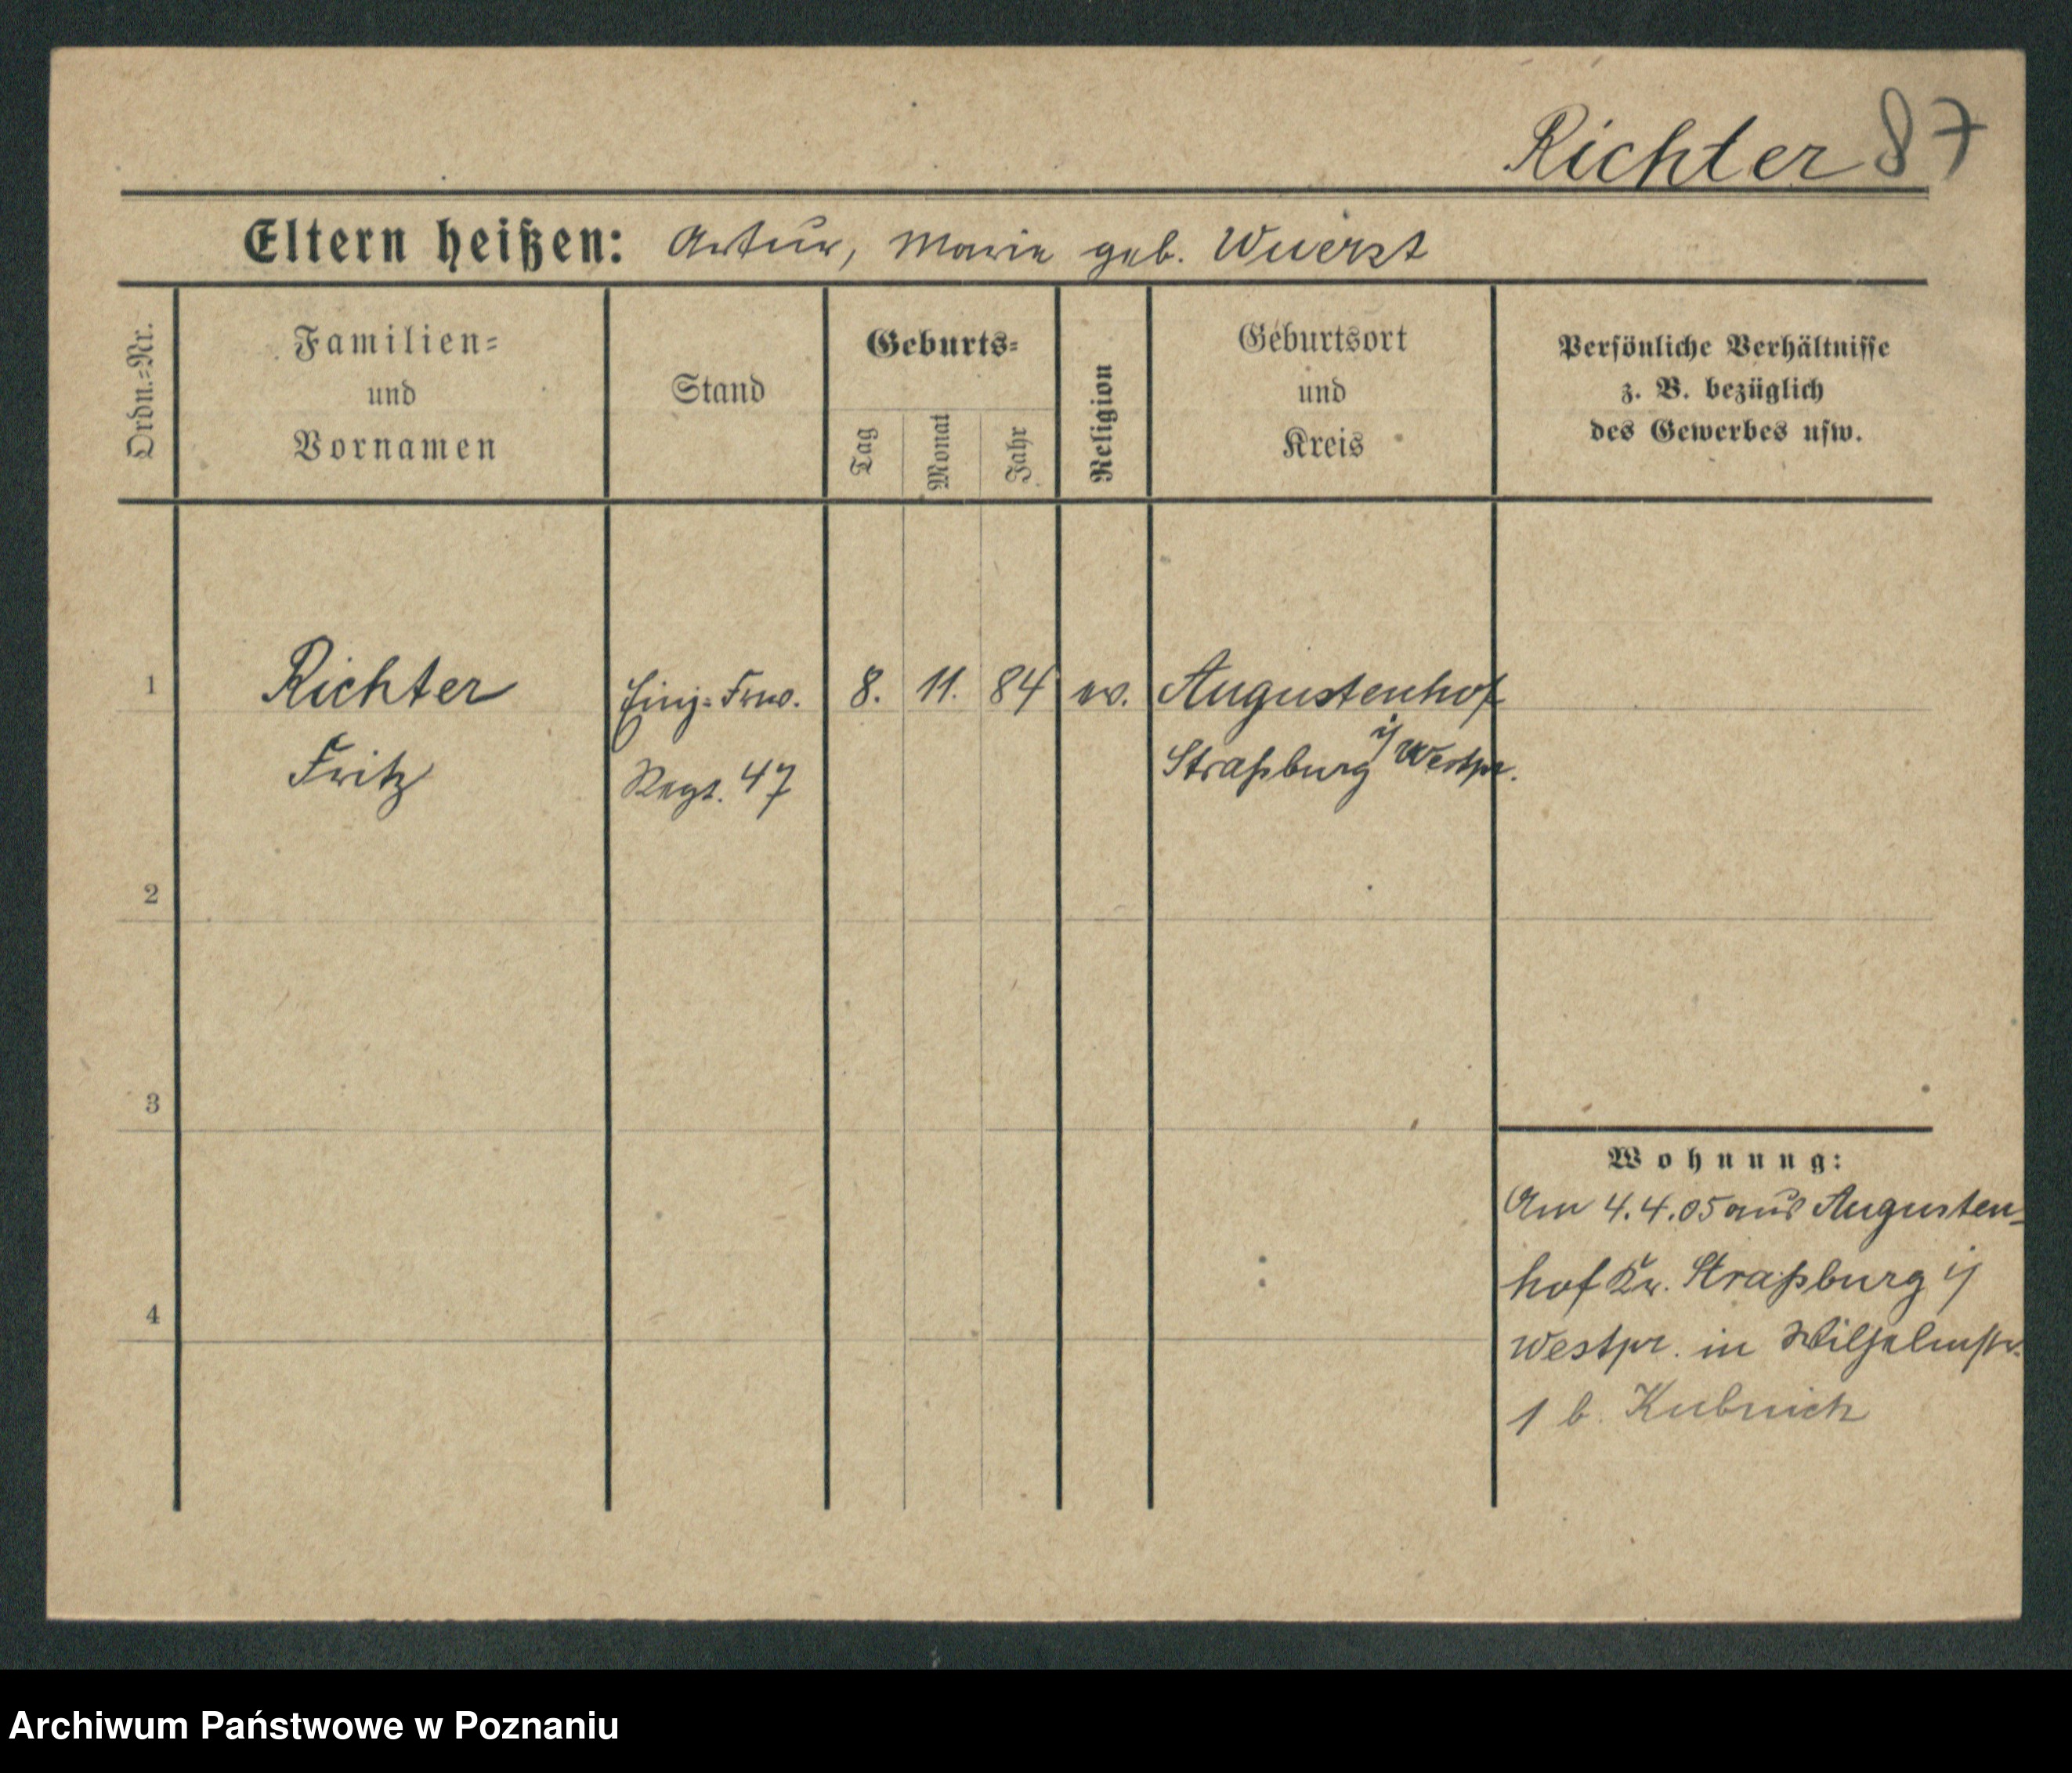 Richter 87
Eltern heißen: Artur, Marie geb. Wuerst
Ordn.=Nr.
Familien=
und
Vornamen
Stand
Geburts=
Tag
Monat
Jahr
Religion
Geburtsort
und
Kreis
Persönliche Verhältnisse
z. B. bezüglich
des Gewerbes usw.
1 Richter Einj.=Frw. 8. 11. 84 ev. Augustenhof
Fritz Regt. 47 Straßburg i/ Westpr.
2
3
4
Wohnung:
Am 4.4.05 aus Augusten-
hof Kr. Straßburg i/
Westpr. in Wilhelmstr.
1 b. Kubnick
Archiwum Państwowe w Poznaniu